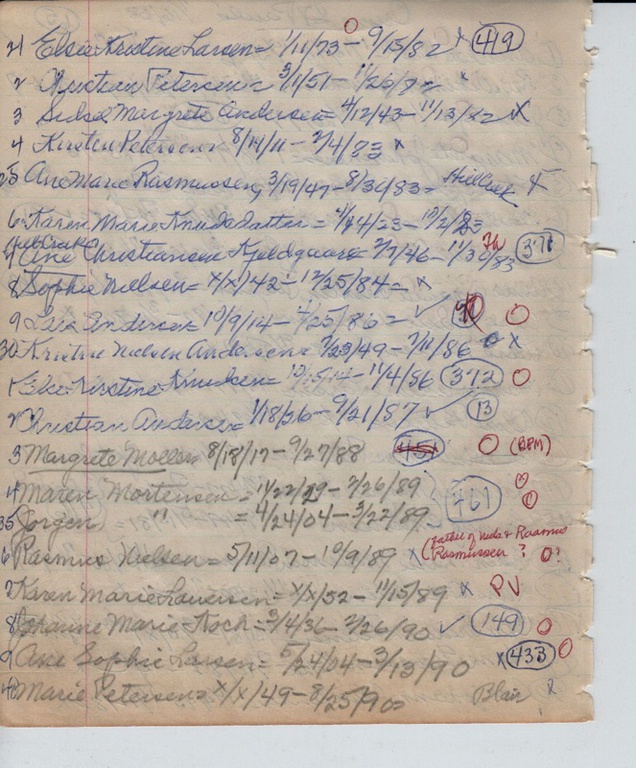 21 Elsie Kristine Larsen = 1/11/73 - 9/15/82 x 419
2 Christian Petersen = 3/1/51 - 11/26/82 x
3 Margrete Andersen = 4/12/43 - 11/13/82 x
4 Kirsten Petersen 8/19/11 - 2/4/83 x
25 Ane Marie Rasmussen, 3/19/47 - 8/30/83 =
6 Karen Marie Knudsdatter = - 10/2/83
Ane Christiansen Kjeldgaard = 2/7/46 - 11/30/83 371
8 Sophie Nielsen = x/x/42 - 12/25/84 = x
9 Anderson = 10/9/14 - 4/25/86 = ✓ O
30 Kristine Nielsen Andersen = 2/23/49 - 7/11/86 x
1 Kirstine Knudsen = - 11/4/86 372 O
2 Christian Andersen = 1/18/26 - 9/21/87 ✓ 13
3 Margrete Moeller 8/18/17 - 9/27/88 451 O (BPM)
4 Maren Mortensen = - 2/26/89 461 O
35 Jorgen " = 4/24/04 - 3/22/89 O
(father of & Rasmus
6 Rasmus Nielsen = 5/11/07 - 10/9/89 x Rasmussen ? O?
7 Karen Marie Laursen = x/x/52 - 11/15/89 x PV
8 Johanne Marie Koch = 3/4/36 - 2/26/90 ✓ 149 O
9 Ane Sophie Larsen = 5/24/04 - 3/13/90 x 433 O
40 Marie Petersen = x/x/49 - 8/25/90 = Blair